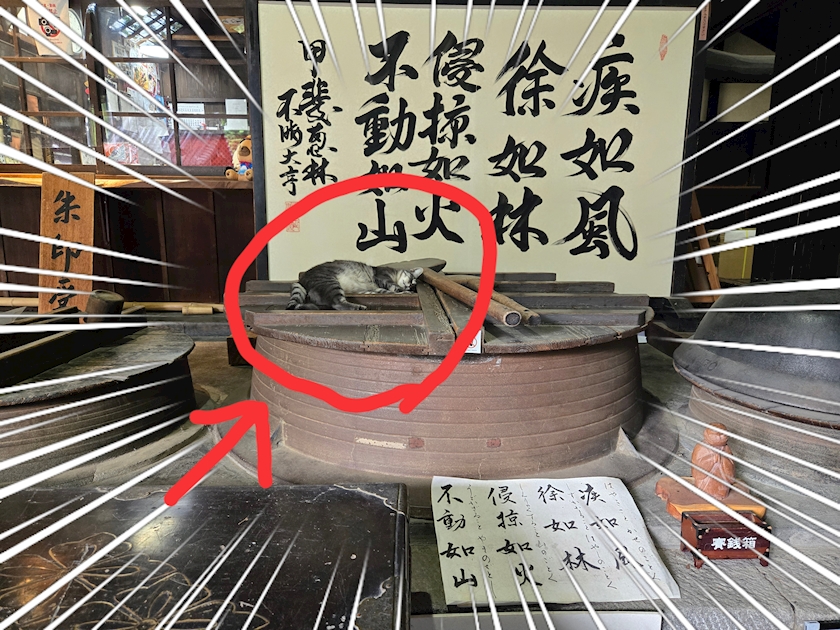 疾如風
徐如林
侵掠如火
不動如山
甲斐恵林
朱印受
疾如風
徐如林
侵掠如火
不動如山
賽銭箱